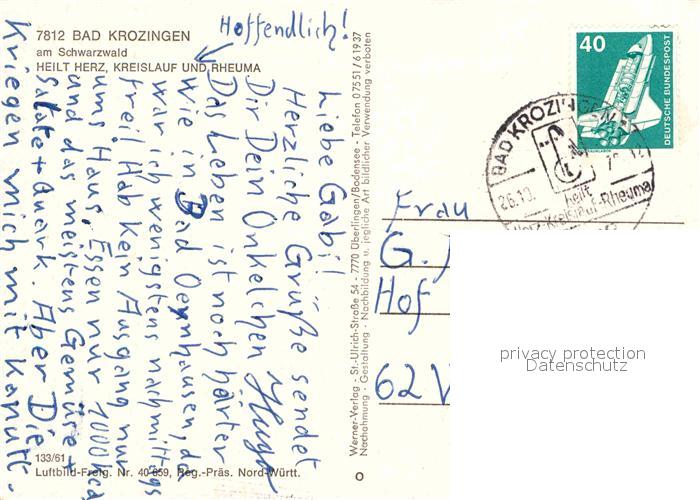 7812 BAD KROZINGEN
am Schwarzwald
HEILT HERZ, KREISLAUF UND RHEUMA
Hoffendlich!
Liebe Gabi!
Herzliche Grüße sendet
Dir Dein Onkelchen Hugo
Das Leben ist noch härter
wie in Bad Oeynhausen, da
war ich wenigstens nachmittags
frei! Hab kein Ausgang nur
ums Haus, Essen nur 1000 kca
und das meistens Gemüse +
Salate + Quark. Aber Die
Kriegen mich nit kaputt.
133/61
Luftbild-Freig. Nr. 40 659, Reg.-Präs. Nord-Württ.
Werner-Verlag · St.-Ulrich-Straße 54 · 7770 Überlingen/Bodensee · Telefon 07551/61937
Nachahmung · Gestaltung · Nachbildung u. jegliche Art bildlicher Verwendung verboten
40
DEUTSCHE BUNDESPOST
BAD KROZINGEN
26.10.
heilt
Herz-Kreislauf-Rheuma
Frau
G.
Hof
62
privacy protection
Datenschutz